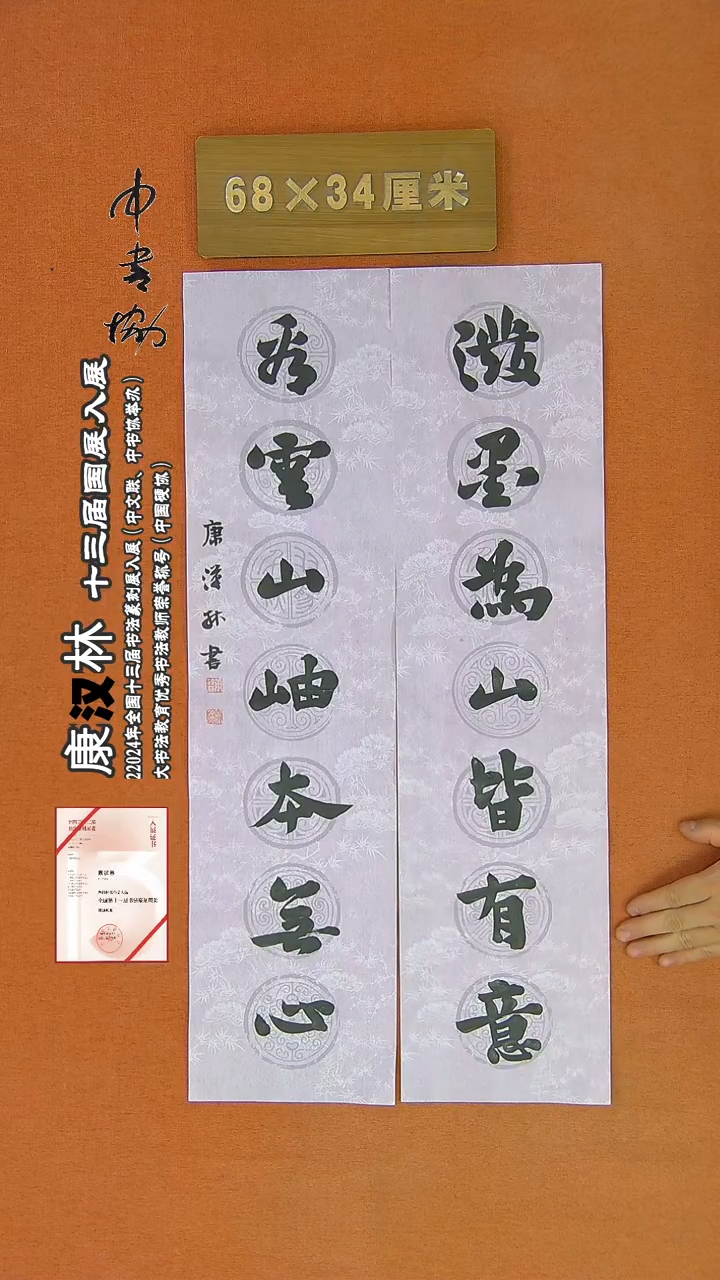 68×34厘米
潑墨為山皆有意
看雲出岫本無心
康漢林書
中書協
康汉林 十三届国展入展
22024年全国十三届书法篆刻展入展(中文联、中书协举办)
大书法教育优秀书法教师荣誉称号(中国硬协)